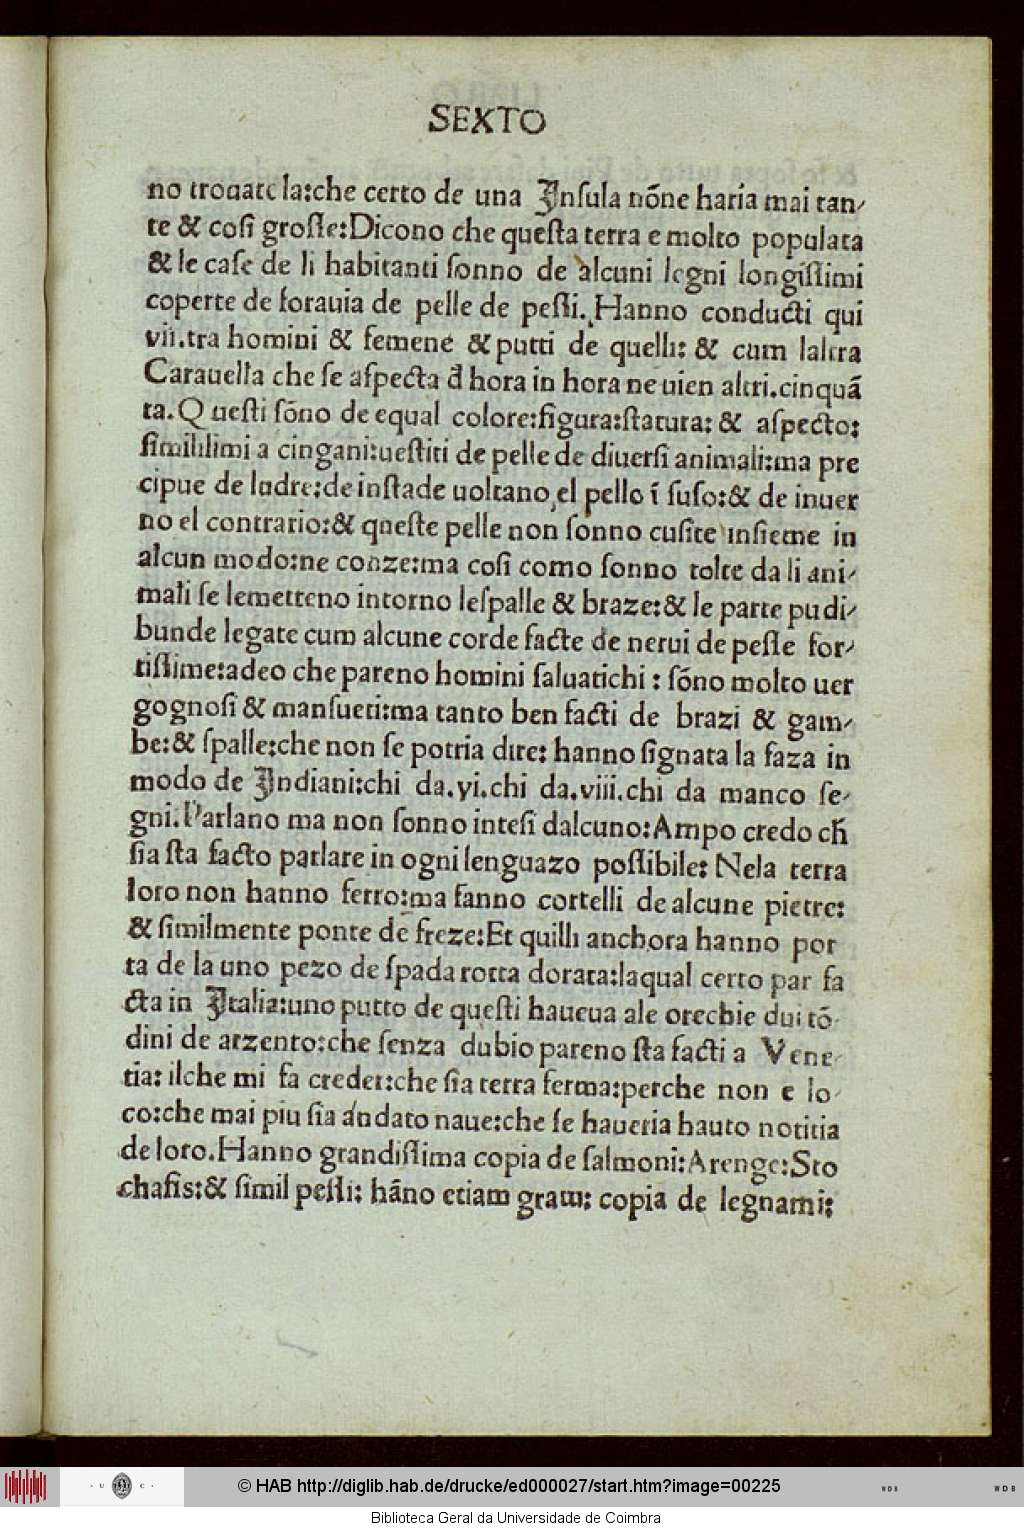 SEXTO
no trouate la:che certo de una Insula nōne haria mai tan-
te & cosi grosse:Dicono che questa terra e molto populata
& le case de li habitanti sonno de alcuni legni longissimi
coperte de forauia de pelle de pessi. Hanno conducti qui
vii.tra homini & femene & putti de quelli: & cum laltra
Carauella che se aspecta đ hora in hora ne uien altri.cinquā
ta.Questi sōno de equal colore:figura:statura: & aspecto:
similissimi a cingani:uestiti de pelle de diuersi animali:ma pre
cipue de ludre:de instade uoltano el pello ī suso:& de inuer
no el contrario:& queste pelle non sonno cusite insieme in
alcun modo:ne conze:ma cosi como sonno tolte da li ani-
mali se lemetteno intorno lespalle & braze:& le parte pudi-
bunde legate cum alcune corde facte de nerui de pesse for-
tissime:adeo che pareno homini saluatichi : sōno molto uer
gognosi & mansueti:ma tanto ben facti de brazi & gam-
be:& spalle:che non se potria dire: hanno signata la faza in
modo de Indiani:chi da.vi.chi da.viii.chi da manco se-
gni.Parlano ma non sonno intesi dalcuno:Ampo credo cħ
sia sta facto parlare in ogni lenguazo possibile: Nela terra
loro non hanno ferro:ma fanno cortelli de alcune pietre:
& similmente ponte de freze:Et quilli anchora hanno por
ta de la uno pezo de spada rotta dorata:laqual certo par fa
cta in Italia:uno putto de questi haueua ale orechie dui tō-
dini de arzento:che senza dubio pareno sta facti a Vene-
tia: ilche mi fa creder:che sia terra ferma:perche non e lo-
co:che mai piu sia andato naue:che se haueria hauto notitia
de loro.Hanno grandissima copia de salmoni:Arenge:Sto
chafis:& simil pessi: hāno etiam gram: copia de legnami:
© HAB http://diglib.hab.de/drucke/ed000027/start.htm?image=00225
Biblioteca Geral da Universidade de Coimbra